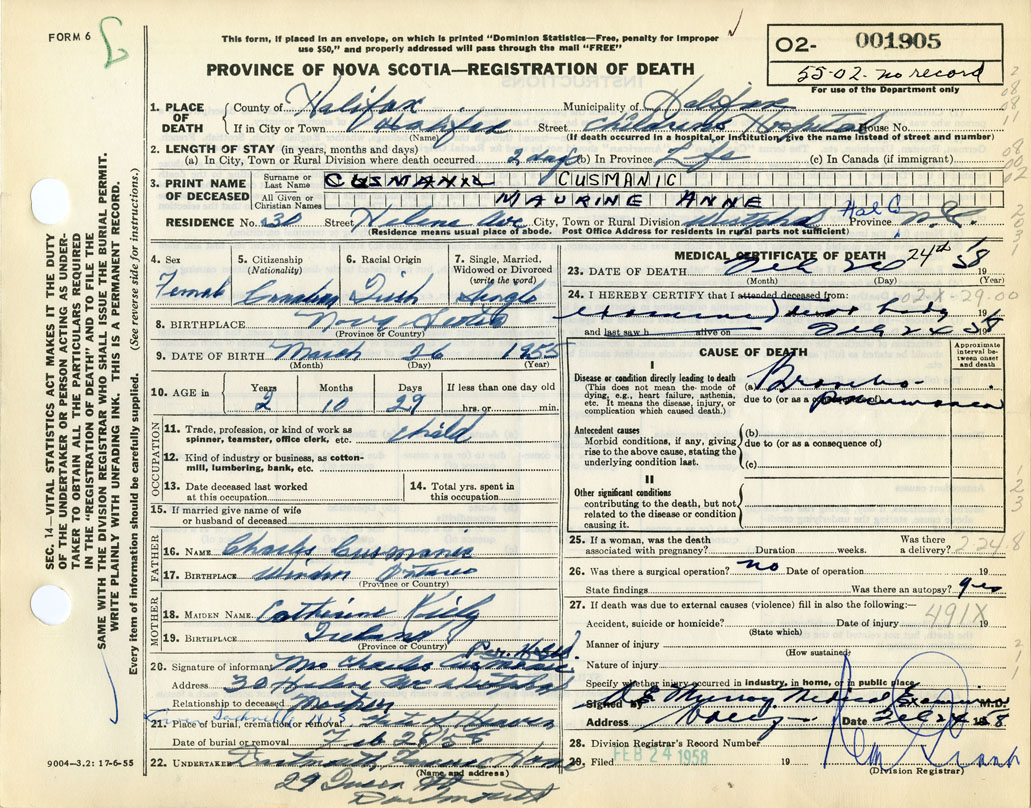 FORM 6
This form, if placed in an envelope, on which is printed "Dominion Statistics—Free, penalty for improper
use $50," and properly addressed will pass through the mail "FREE"
PROVINCE OF NOVA SCOTIA—REGISTRATION OF DEATH
02- 001905
55-02- no record
For use of the Department only
SEC. 14—VITAL STATISTICS ACT MAKES IT THE DUTY
OF THE UNDERTAKER OR PERSON ACTING AS UNDER-
TAKER TO OBTAIN ALL THE PARTICULARS REQUIRED
IN THE "REGISTRATION OF DEATH" AND TO FILE THE
SAME WITH THE DIVISION REGISTRAR WHO SHALL ISSUE THE BURIAL PERMIT.
WRITE PLAINLY WITH UNFADING INK. THIS IS A PERMANENT RECORD.
Every item of information should be carefully supplied. (See reverse side for instructions.)
1. PLACE OF DEATH County of Halifax Municipality of Halifax
If in City or Town Halifax Street Children's Hospital House No.
(Name) (If death occurred in a hospital or institution, give the name instead of street and number)
2. LENGTH OF STAY (in years, months and days)
(a) In City, Town or Rural Division where death occurred 2 days (b) In Province Life (c) In Canada (if immigrant)
3. PRINT NAME OF DECEASED Surname or Last Name CUSMANIC
All Given or Christian Names MAURINE ANNE
RESIDENCE No. 30 Street Helene Ave City, Town or Rural Division Westphal Hal Co Province N.S.
(Residence means usual place of abode. Post Office Address for residents in rural parts not sufficient)
4. Sex Female
5. Citizenship (Nationality) Canadian
6. Racial Origin Irish
7. Single, Married, Widowed or Divorced (write the word) Single
8. BIRTHPLACE Nova Scotia
(Province or Country)
9. DATE OF BIRTH March 26 1955
(Month) (Day) (Year)
10. AGE in Years 2 Months 10 Days 29 If less than one day old hrs. or min.
OCCUPATION
11. Trade, profession, or kind of work as spinner, teamster, office clerk, etc. child
12. Kind of industry or business, as cotton-mill, lumbering, bank, etc.
13. Date deceased last worked at this occupation
14. Total yrs. spent in this occupation
15. If married give name of wife or husband of deceased
FATHER
16. NAME Charles Cusmanic
17. BIRTHPLACE Windsor Ontario
(Province or Country)
MOTHER
18. MAIDEN NAME Catherine Kiely
19. BIRTHPLACE Ireland
(Province or Country)
20. Signature of informant Mrs Charles Cusmanic
Address 30 Helene Ave Westphal
Relationship to deceased Mother
21. Place of burial, cremation or removal
Date of burial or removal Feb 28 58
22. UNDERTAKER Dartmouth Funeral Home
(Name and address)
29 Queen St
Dartmouth
9004—3.2: 17-6-55
MEDICAL CERTIFICATE OF DEATH
23. DATE OF DEATH Feb 24th 19 58
(Month) (Day) (Year)
24. I HEREBY CERTIFY that I attended deceased from:
examined dead body 02X-29.00
and last saw h alive on Feb 24 58
CAUSE OF DEATH
Approximate interval between onset and death
I
Disease or condition directly leading to death
(This does not mean the mode of dying, e.g., heart failure, asthenia, etc. It means the disease, injury, or complication which caused death.)
(a) Broncho-
due to (or as a consequence of) pneumonia
Antecedent causes
Morbid conditions, if any, giving rise to the above cause, stating the underlying condition last.
(b)
due to (or as a consequence of)
(c)
II
Other significant conditions
contributing to the death, but not related to the disease or condition causing it.
25. If a woman, was the death associated with pregnancy? Duration weeks. Was there a delivery? 2-24-8
26. Was there a surgical operation? no Date of operation 19
State findings Was there an autopsy? yes
27. If death was due to external causes (violence) fill in also the following:—
491X
Accident, suicide or homicide? Date of injury 19
(State which)
Manner of injury
(How sustained)
Nature of injury
Specify whether injury occurred in industry, in home, or in public place
Signed by Murray Medical Examiner M.D.
Address Date Feb 24 1958
28. Division Registrar's Record Number
29. Filed FEB 24 1958 19
(Division Registrar)